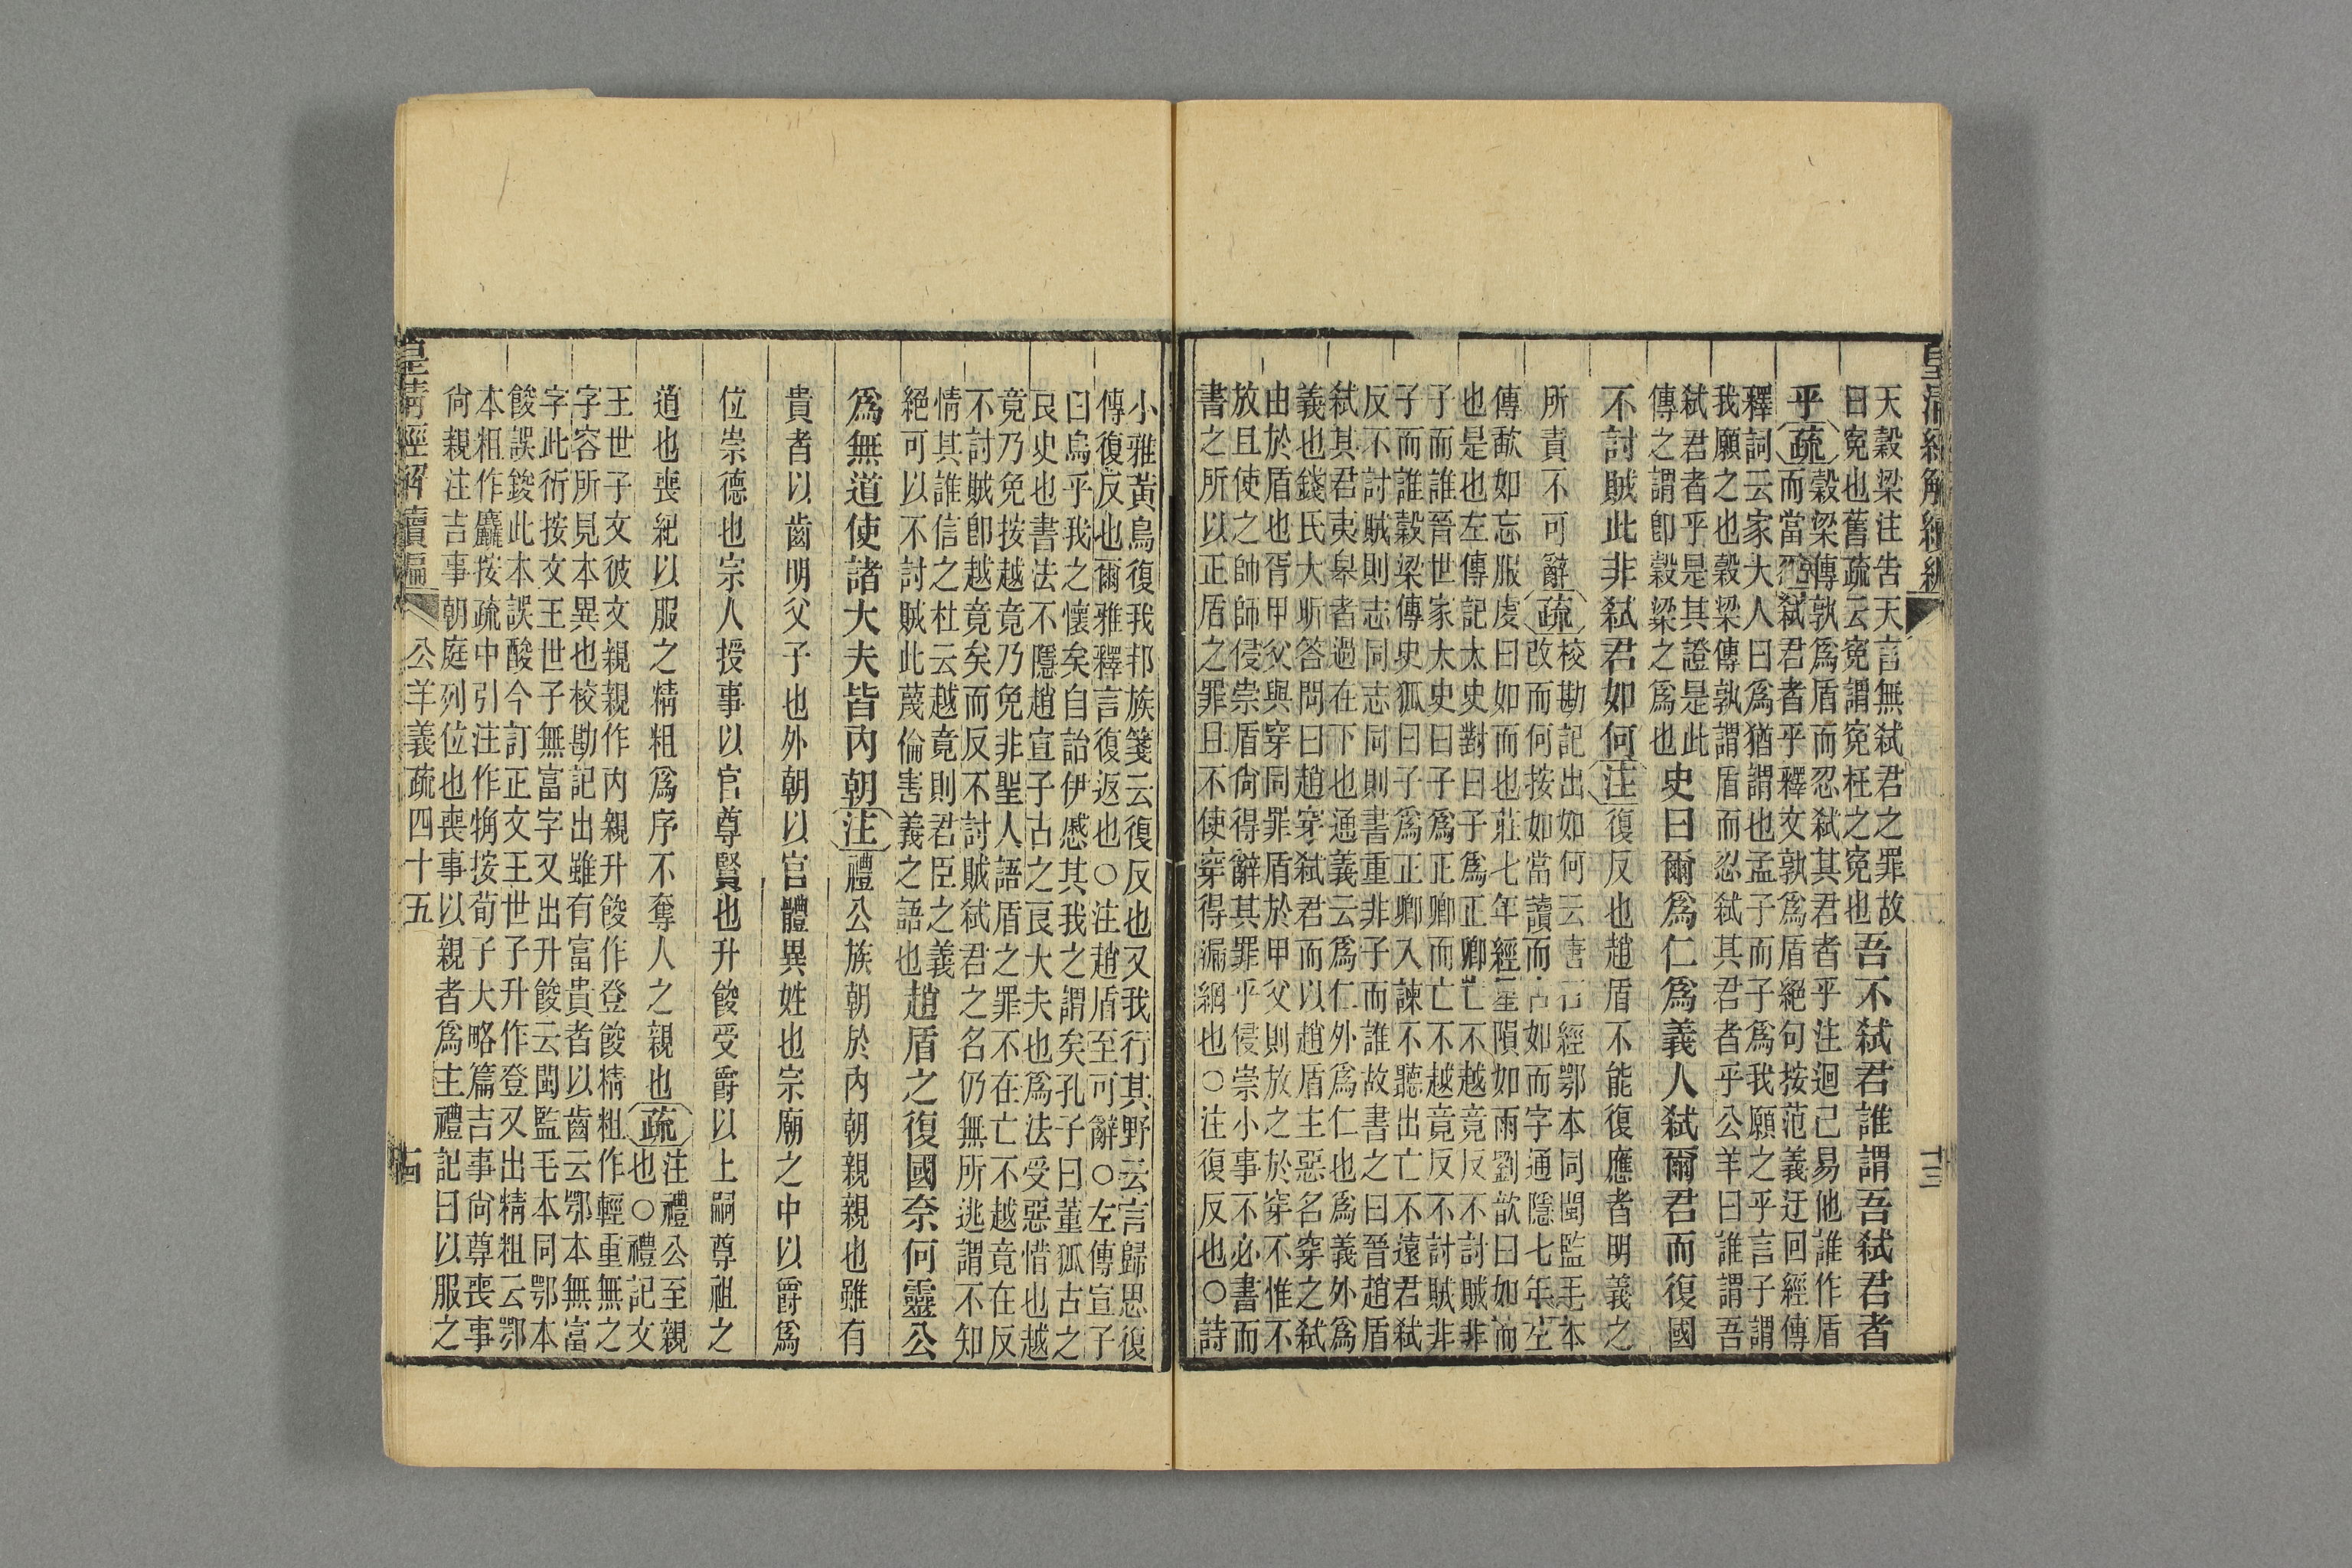 皇清經解續編
十三
天穀梁注告天言無弑君之罪故
曰寃也舊疏云寃謂寃枉之寃也
吾不弑君誰謂吾弑君者
乎疏
穀梁傳孰爲盾而忍弑其君者乎注迴己易他誰作盾
而當忍弑君者乎釋文孰爲盾絕句按范義迂回經傳
釋詞云家大人曰爲猶謂也孟子而子爲我願之乎言子謂
我願之也穀梁傳孰謂盾而忍弑其君者乎公羊曰誰謂吾
弑君者乎是其證是此
傳之謂卽穀梁之爲也
史曰爾爲仁爲義人弑爾君而復國
不討賊此非弑君如何注復反也趙盾不能復應者明義之
所責不可辭疏
校勘記出如何云唐石經鄂本同閩監毛本
改而何按如當讀而古如而字通隱七年左
傳歃如忘服虔曰如而也莊七年經星隕如雨劉歆曰如而
也是也左傳記太史對曰子爲正卿亡不越竟反不討賊非
子而誰晉世家太史曰子爲正卿而亡不越竟反不討賊非
子而誰穀梁傳史狐曰子爲正卿入諫不聽出亡不遠君弑
反不討賊則志同志同則書重非子而誰故書之曰晉趙盾
弑其君夷皋者過在下也通義云爲仁外爲仁也爲義外爲
義也錢氏大昕答問曰趙穿弑君而以趙盾主惡名穿之弑
由於盾也胥甲父與穿同罪盾於甲父則放之於穿不惟不
放且使之帥師侵崇盾尚得辭其罪乎侵崇小事不必書而
書之所以正盾之罪且不使穿得漏網也○注復反也○詩
小雅黃鳥復我邦族箋云復反也又我行其野云言歸思復
傳復反也爾雅釋言復返也○注趙盾至可辭○左傳宣子
曰烏乎我之懷矣自詒伊慼其我之謂矣孔子曰董狐古之
良史也書法不隱趙宣子古之良大夫也爲法受惡惜也越
竟乃免按越竟乃免非聖人語盾之罪不在亡不越竟在反
不討賊卽越竟矣而反不討賊弑君之名仍無所逃謂不知
情其誰信之杜云越竟則君臣之義
絕可以不討賊此蔑倫害義之語也
趙盾之復國奈何靈公
爲無道使諸大夫皆內朝注禮公族朝於內朝親親也雖有
貴者以齒明父子也外朝以官體異姓也宗廟之中以爵爲
位崇德也宗人授事以官尊賢也升餕受爵以上嗣尊祖之
道也喪紀以服之精粗爲序不奪人之親也疏
注禮公至親
也○禮記文
王世子文彼文親親作內親升餕作登餕精粗作輕重無之
字容所見本異也校勘記出雖有富貴者以齒云鄂本無富
字此衍按文王世子無富字又出升餕云閩監毛本同鄂本
餕誤鋑此本誤酸今訂正文王世子升作登又出精粗云鄂
本粗作麤按疏中引注作觕按荀子大略篇吉事尚尊喪事
尚親注吉事朝庭列位也喪事以親者爲主禮記曰以服之
皇清經解續編
公羊義疏四十五
十四